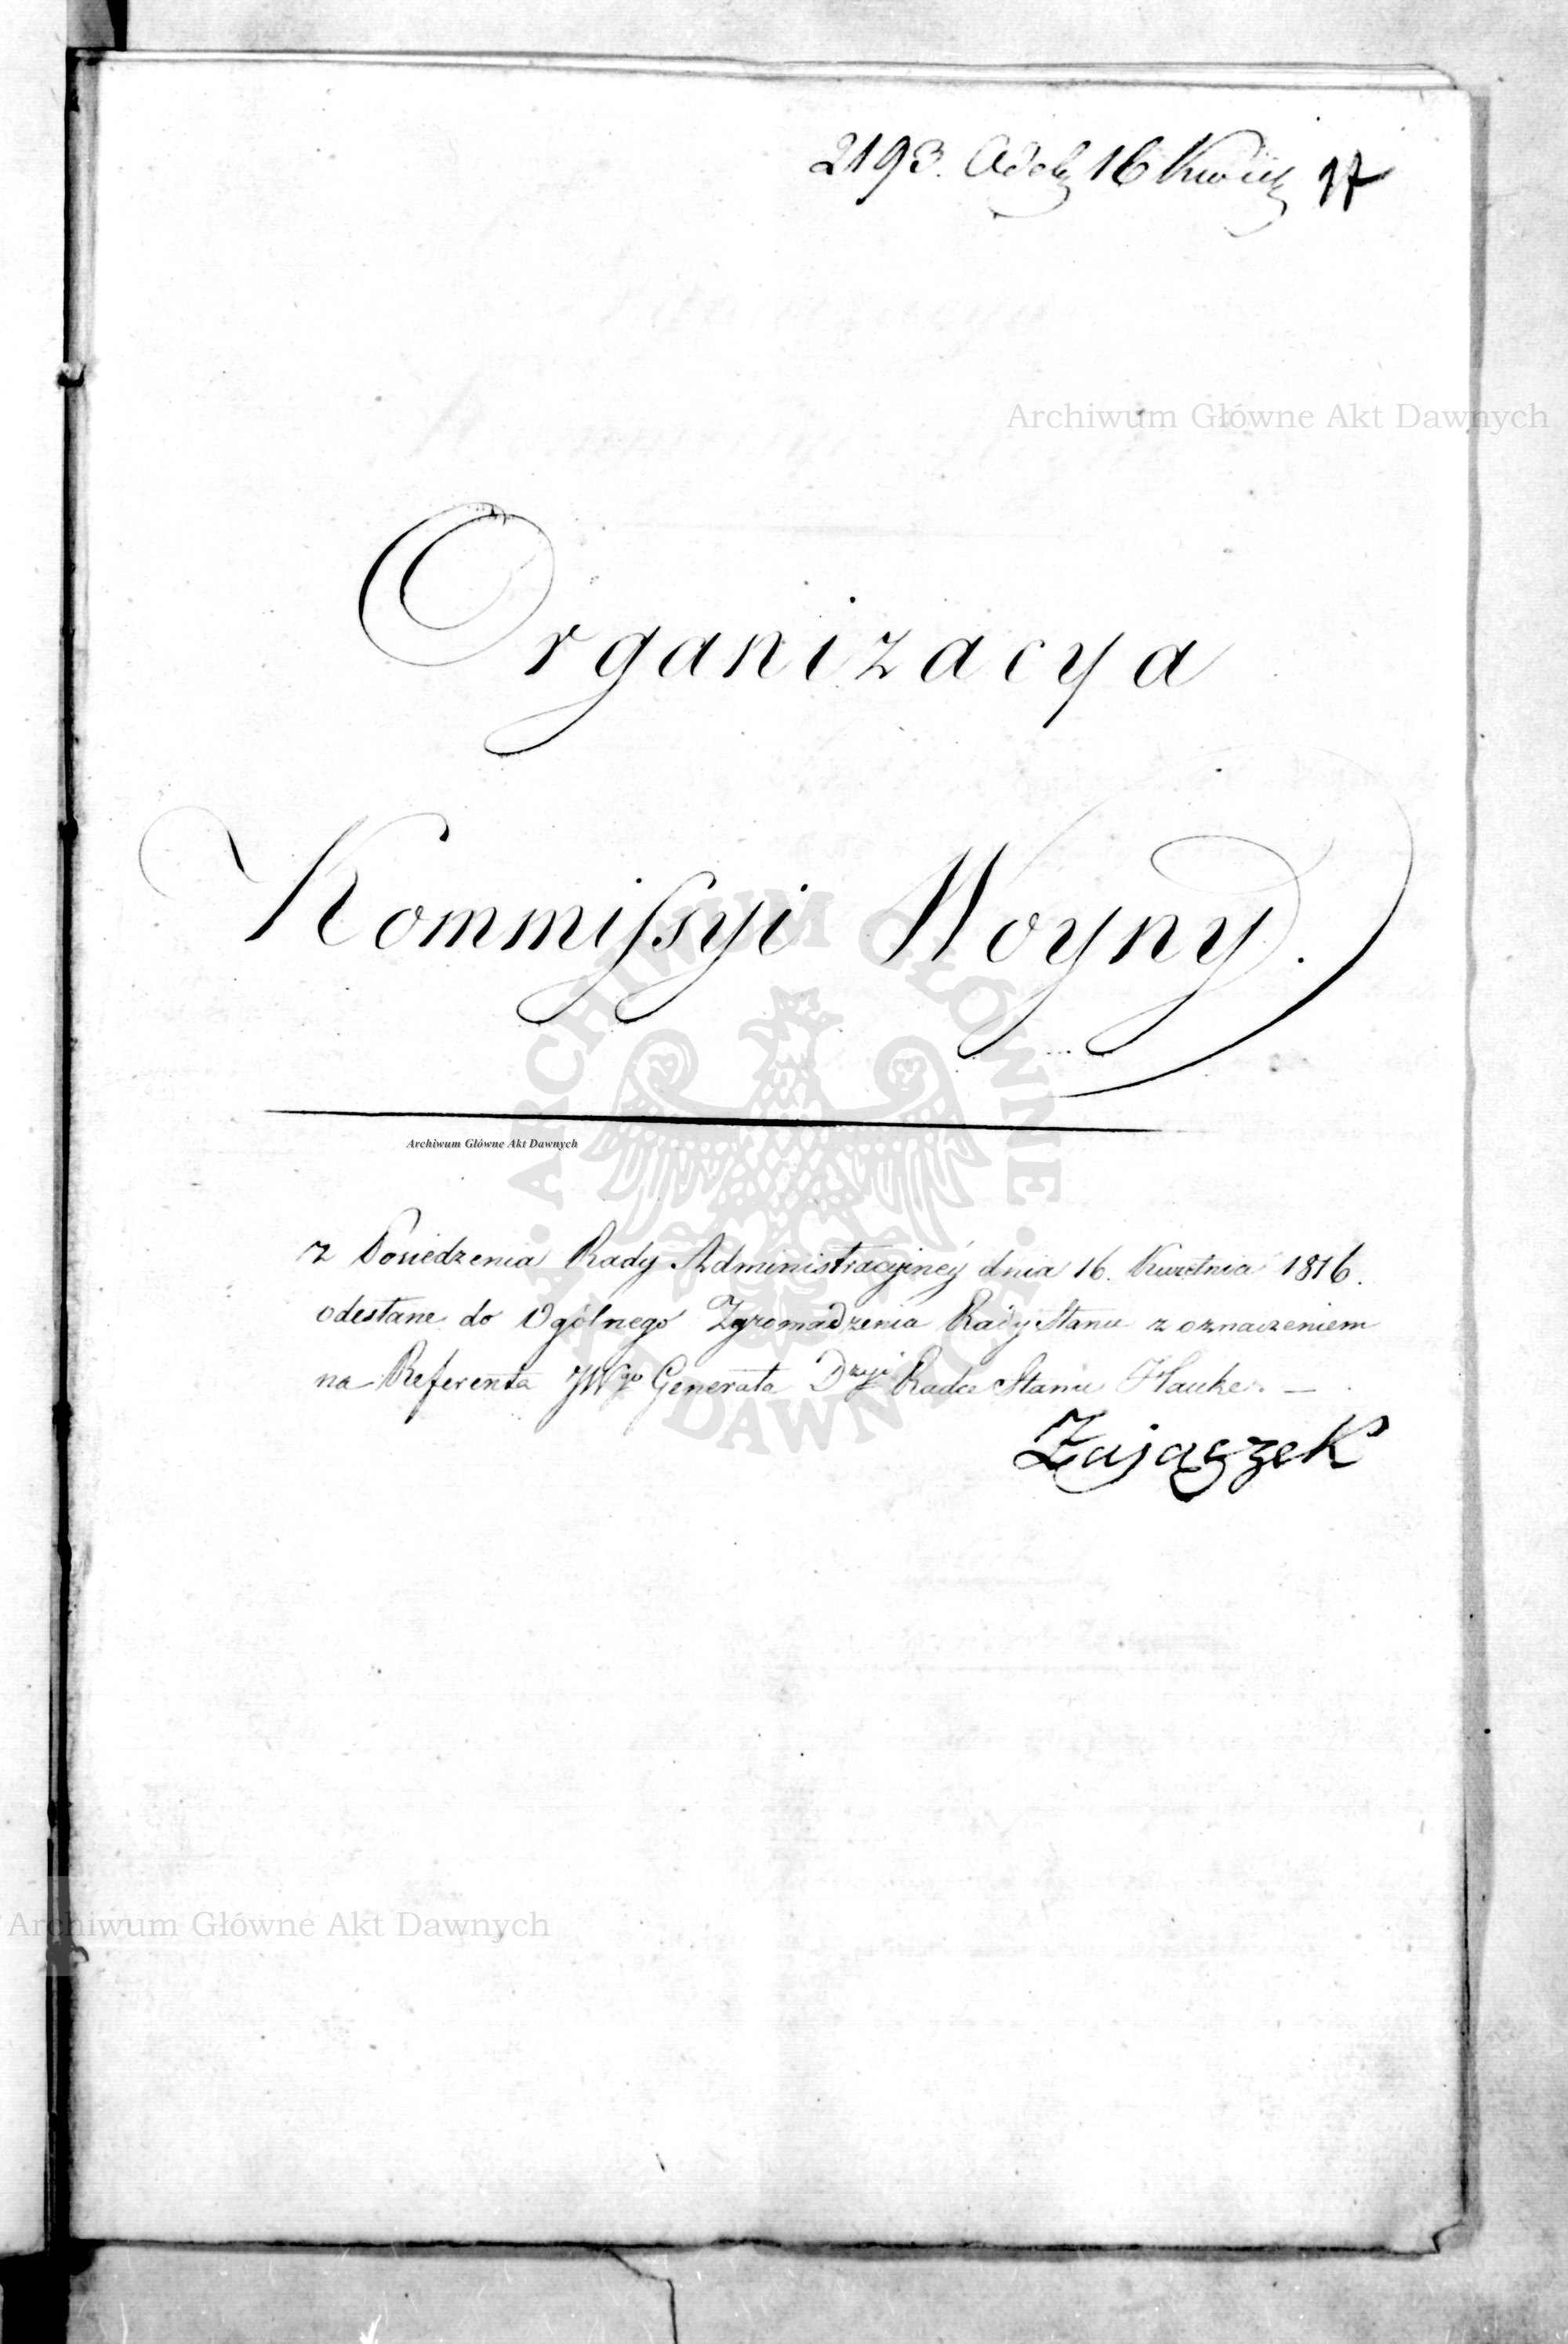 2193. Odeb 16 Kwiet 17
Archiwum Główne Akt Dawnych
Organizacya
Kommissyi Woyny.
ARCHIWUM GŁÓWNE AKT DAWNYCH
Archiwum Główne Akt Dawnych
z Posiedzenia Rady Administracyiney dnia 16. Kwietnia 1816.
odesłane do Ogólnego Zgromadzenia Rady Stanu z oznaczeniem
na Referenta JWgo Generała Dyzyi Radce Stanu Hauke. —
Zajączek
Archiwum Główne Akt Dawnych